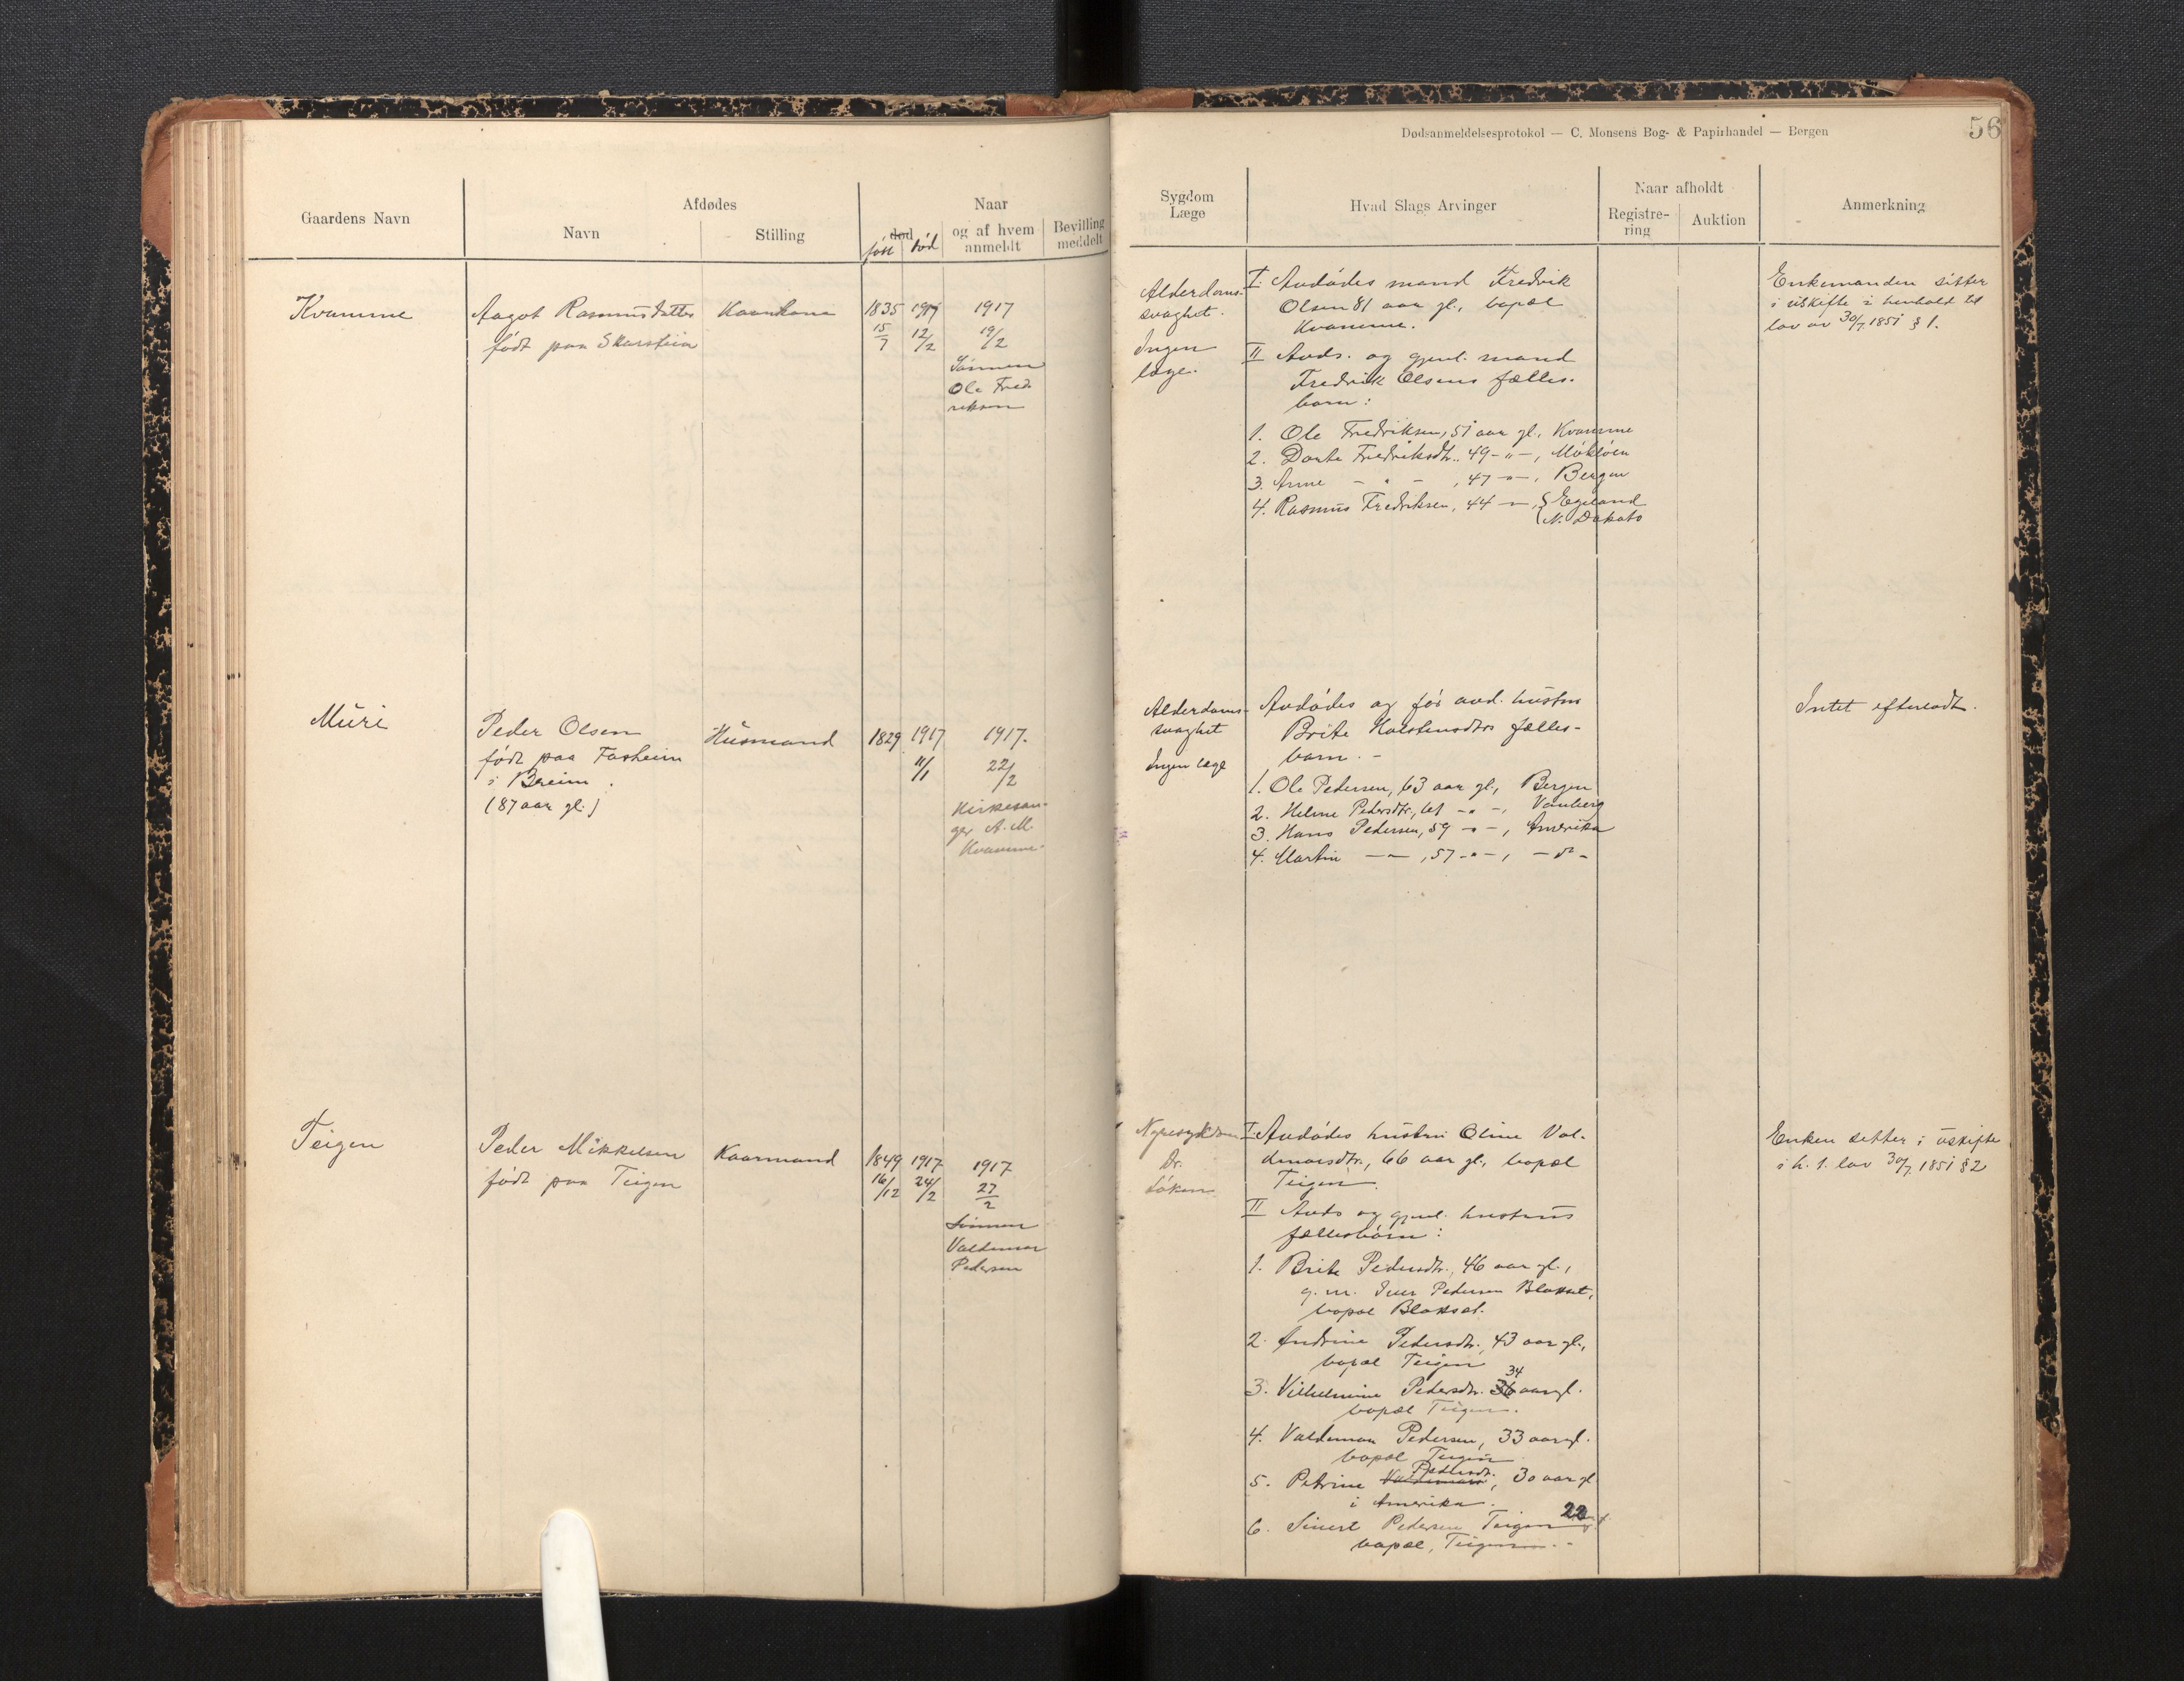 Dødsanmeldelsesprotokol — C. Monsens Bog- & Papirhandel — Bergen
56
Gaardens Navn
Afdødes
Navn
Stilling
Naar
død
født
død
og af hvem
anmeldt
Bevilling
meddelt
Sygdom
Læge
Hvad Slags Arvinger
Naar afholdt
Registre-
ring
Auktion
Anmerkning
Kvamme
Aagot Rasmusdatter
født paa Skarstein
Kaarkona
1835
15/7
1917
12/2
1917
19/2
Sönnen
Ole Fred-
riksen
Alderdoms-
svaghet.
Ingen
læge.
I. Avdødes mand Fredrik
Olsen 81 aar gl., bopæl
Kvamme.
II Avds. og gjenl. mand
Fredrik Olsens fælles-
barn:
1. Ole Fredriksen, 51 aar gl., Kvamme
2. Dorte Fredriksdtr. 49 -"-, Mökløen
3. Anne - " - , 47 -"-, Bergen
4. Rasmus Fredriksen, 44 -"-, Egeland
N. Dakato
Enkemanden sitter
i uskifte i henhold til
lov av 30/7 1851 § 1.
Muri
Peder Olsen
født paa Fosheim
i Breim.
(87 aar gl.)
Husmand
1829
1917
11/1
1917.
22/2
Kirkesan-
ger A. M.
Kvamme.
Alderdoms-
svaghet
Ingen læge
Avdødes og før avd. hustru
Brite Halstensdtrs fælles-
barn. -
1. Ole Pedersen, 63 aar gl., Bergen
2. Helene Pedersdtr., 61 -"-,
3. Hans Pedersen, 59 -"-, Amerika
4. Martin -"-, 57 -"-, - do -
Intet efterladt.
Teigen
Peder Mikkelsen
født paa Teigen
Kaarmand
1849
16/12
1917
24/2
1917
27/2
Sönnen
Valdemar
Pedersen
Nyresygdom
Dr.
Löken
I. Avdødes hustru Oline Val-
demarsdtr., 66 aar gl., bopæl
Teigen.
II Avds og gjenl. hustrus
fællesbörn:
1. Brite Pedersdtr., 46 aar gl.,
g. m. Iver Pedersen Blakset,
bopæl Blakset.
2. Andrine Pedersdtr., 43 aar gl.,
bopæl Teigen
34
3. Vilhelmine Pedersdtr. 36 aar gl.
bopæl Teigen.
4. Valdemar Pedersen, 33 aar gl.
bopæl Teigen
Pedersdt.
5. Petrine Valdemars, 30 aar gl
i Amerika.
22
6. Sivert Pedersen Teigen
bopæl, Teigen. -
Enken sitter i uskifte
i h. t. lov 30/7 1851 § 2